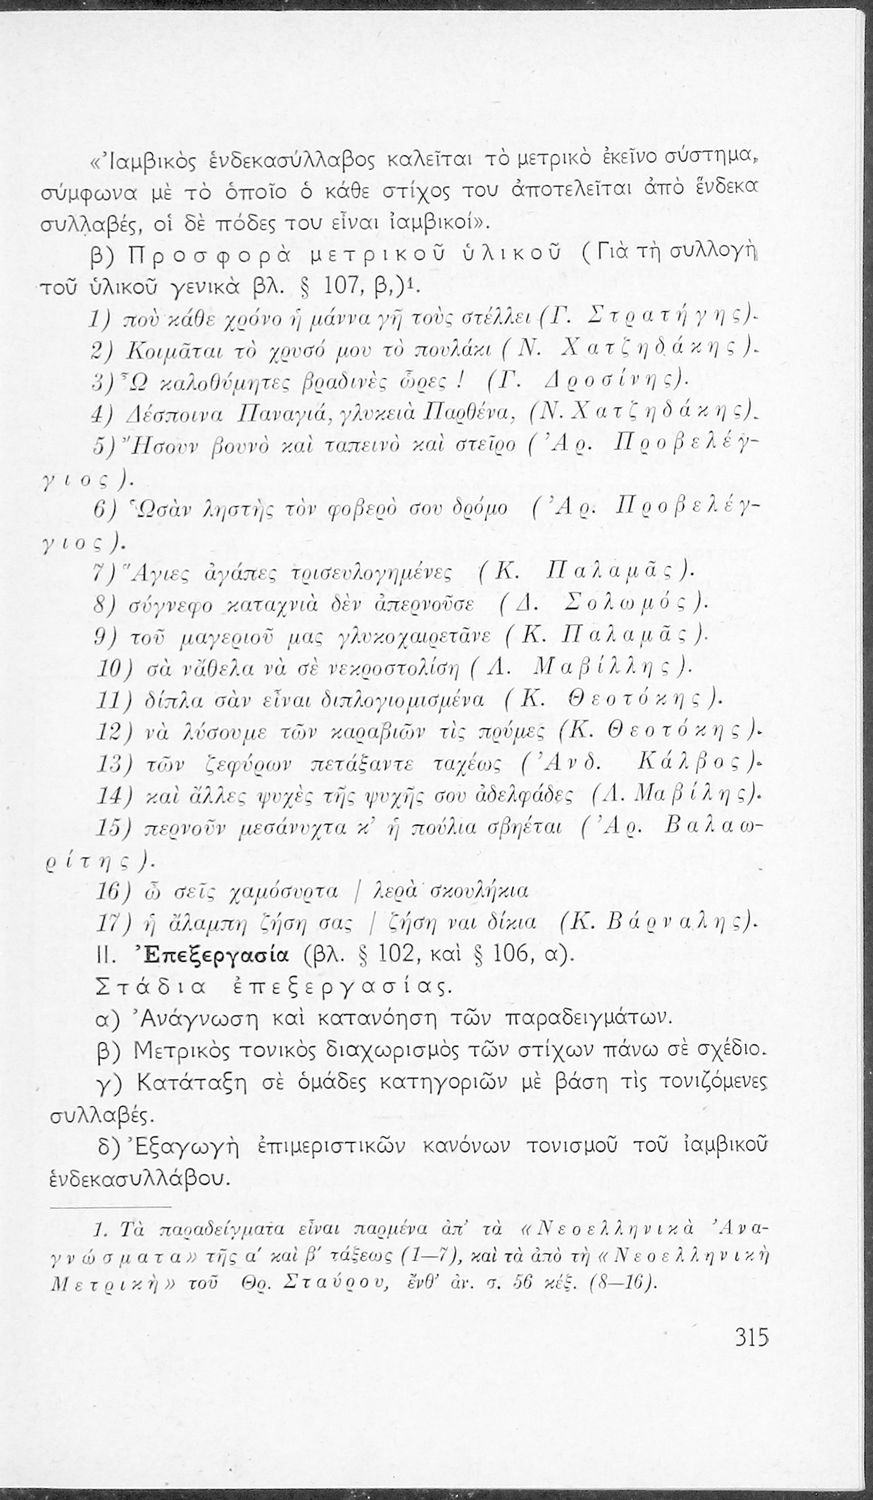 «Ἰαμβικὸς ἑνδεκασύλλαβος καλεῖται τὸ μετρικὸ ἐκεῖνο σύστημα,
σύμφωνα μὲ τὸ ὁποῖο ὁ κάθε στίχος του ἀποτελεῖται ἀπὸ ἕνδεκα
συλλαβές, οἱ δὲ πόδες του εἶναι ἰαμβικοί».
β) Προσφορὰ μετρικοῦ ὑλικοῦ (Γιὰ τὴ συλλογὴ
τοῦ ὑλικοῦ γενικὰ βλ. § 107, β,)¹.
1) ποὺ κάθε χρόνο ἡ μάννα γῆ τοὺς στέλλει (Γ. Στρατήγης).
2) Κοιμᾶται τὸ χρυσό μου τὸ πουλάκι (Ν. Χατζηδάκης).
3) Ὦ καλοθύμητες βραδινὲς ὧρες! (Γ. Δροσίνης).
4) Δέσποινα Παναγιά, γλυκειὰ Παρθένα, (Ν. Χατζηδάκης).
5) Ἤσουν βουνὸ καὶ ταπεινὸ καὶ στεῖρο (Ἀρ. Προβελέγ-
γιος).
6) Ὡσὰν ληστὴς τὸν φοβερὸ σου δρόμο (Ἀρ. Προβελέγ-
γιος).
7) Ἅγιες ἀγάπες τρισευλογημένες (Κ. Παλαμᾶς).
8) σύγνεφο καταχνιὰ δὲν ἀπερνοῦσε (Δ. Σολωμός).
9) τοῦ μαγεριοῦ μας γλυκοχαιρετᾶνε (Κ. Παλαμᾶς).
10) σὰ νἄθελα νὰ σὲ νεκροστολίση (Λ. Μαβίλλης).
11) δίπλα σὰν εἶναι διπλογιομισμένα (Κ. Θεοτόκης).
12) νὰ λύσουμε τῶν καραβιῶν τὶς πρύμες (Κ. Θεοτόκης).
13) τῶν ζεφύρων πετάξαντε ταχέως (Ἀνδ. Κάλβος).
14) καὶ ἄλλες ψυχὲς τῆς ψυχῆς σου ἀδελφάδες (Λ. Μαβίλης).
15) περνοῦν μεσάνυχτα κ’ ἡ πούλια σβηέται (Ἀρ. Βαλαω-
ρίτης).
16) ὦ σεῖς χαμόσυρτα | λερὰ σκουλήκια
17) ἡ ἄλαμπη ζήση σας | ζήση ναι δίκια (Κ. Βάρναλης).
ΙΙ. Ἐπεξεργασία (βλ. § 102, καὶ § 106, α).
Στάδια ἐπεξεργασίας.
α) Ἀνάγνωση καὶ κατανόηση τῶν παραδειγμάτων.
β) Μετρικὸς τονικὸς διαχωρισμὸς τῶν στίχων πάνω σὲ σχέδιο.
γ) Κατάταξη σὲ ὁμάδες κατηγοριῶν μὲ βάση τὶς τονιζόμενες
συλλαβές.
δ) Ἐξαγωγὴ ἐπιμεριστικῶν κανόνων τονισμοῦ τοῦ ἰαμβικοῦ
ἑνδεκασυλλάβου.
1. Τὰ παραδείγματα εἶναι παρμένα ἀπ’ τὰ «Νεοελληνικὰ Ἀνα-
γνώσματα» τῆς α′ καὶ β′ τάξεως (1—7), καὶ τὰ ἀπὸ τὴ «Νεοελληνικὴ
Μετρικὴ» τοῦ Θρ. Σταύρου, ἔνθ’ ἀν. σ. 56 κἑξ. (8—16).
315